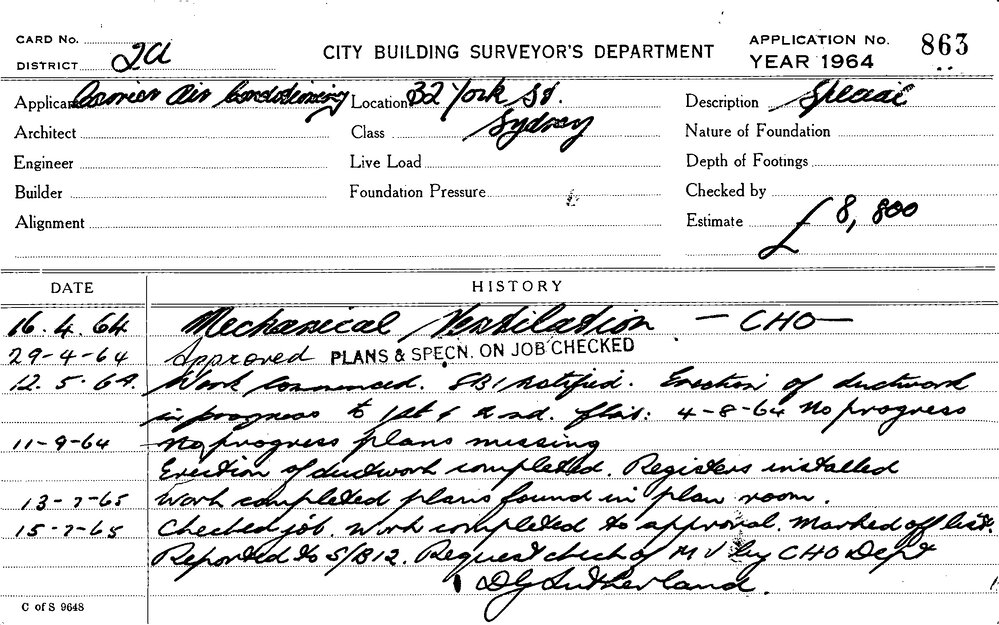 CARD No.
DISTRICT 2A
CITY BUILDING SURVEYOR'S DEPARTMENT
APPLICATION No. 863
YEAR 1964
Applicant Carrier Air Conditioning Location 82 York St. Description Special
Architect Class Sydney Nature of Foundation
Engineer Live Load Depth of Footings
Builder Foundation Pressure Checked by
Alignment Estimate £8,800
DATE HISTORY
16.4.64 Mechanical Ventilation — CHO —
29-4-64 Approved PLANS & SPECN. ON JOB CHECKED
12.5.64. Work Commenced. SB1 notified. Erection of ductwork
in progress to 1st & 2nd. flrs: 4-8-64 No progress
11-9-64 No progress plans missing
Erection of ductwork completed. Registers installed
13-7-65 Work completed plans found in plan room.
15-7-65 Checked job. Work completed to approval. Marked off list.
Reported to S/B12. Request check of M V by CHO Dept
DG Sutherland.
C of S 9648